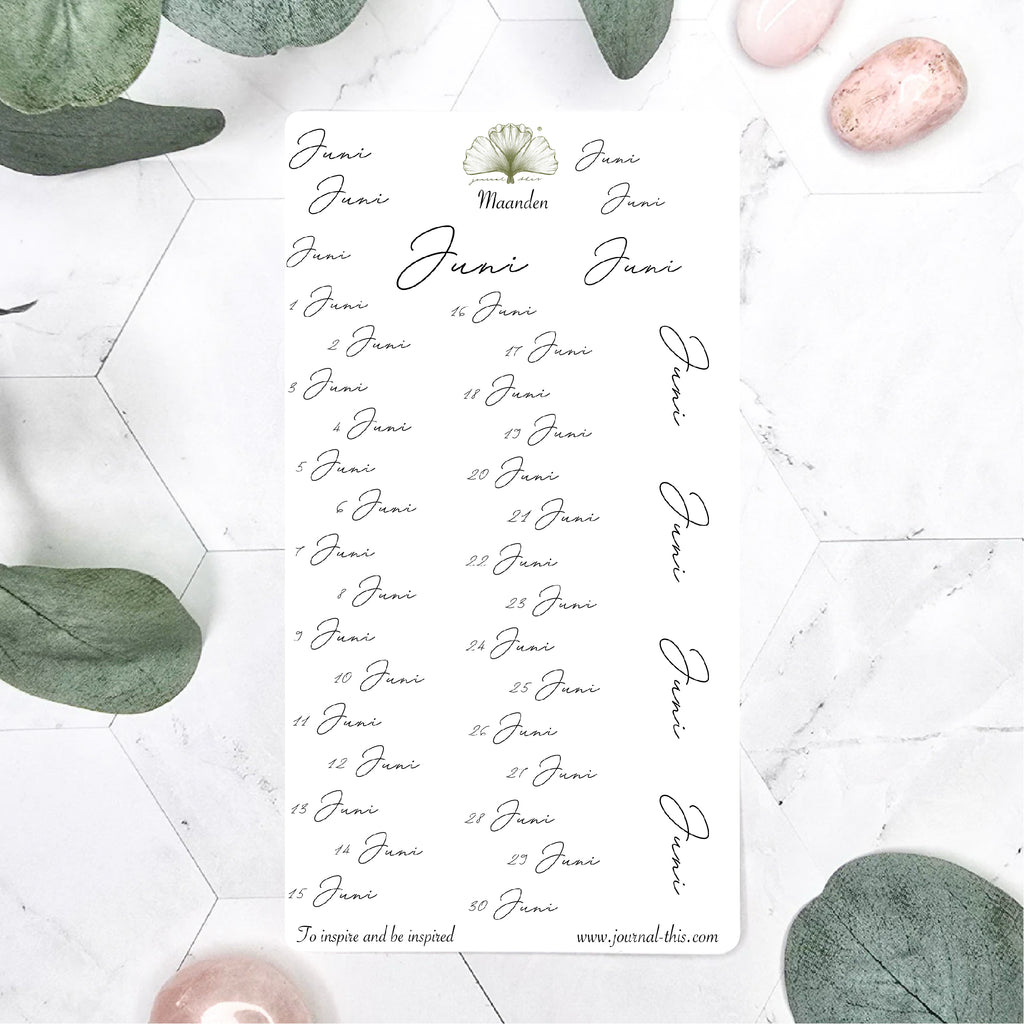 Juni
Juni
journal this
Maanden
Juni
Juni
Juni
Juni
Juni
1 Juni
2 Juni
3 Juni
4 Juni
5 Juni
6 Juni
7 Juni
8 Juni
9 Juni
10 Juni
11 Juni
12 Juni
13 Juni
14 Juni
15 Juni
16 Juni
17 Juni
18 Juni
19 Juni
20 Juni
21 Juni
22 Juni
23 Juni
24 Juni
25 Juni
26 Juni
27 Juni
28 Juni
29 Juni
30 Juni
Juni
Juni
Juni
Juni
To inspire and be inspired
www.journal-this.com